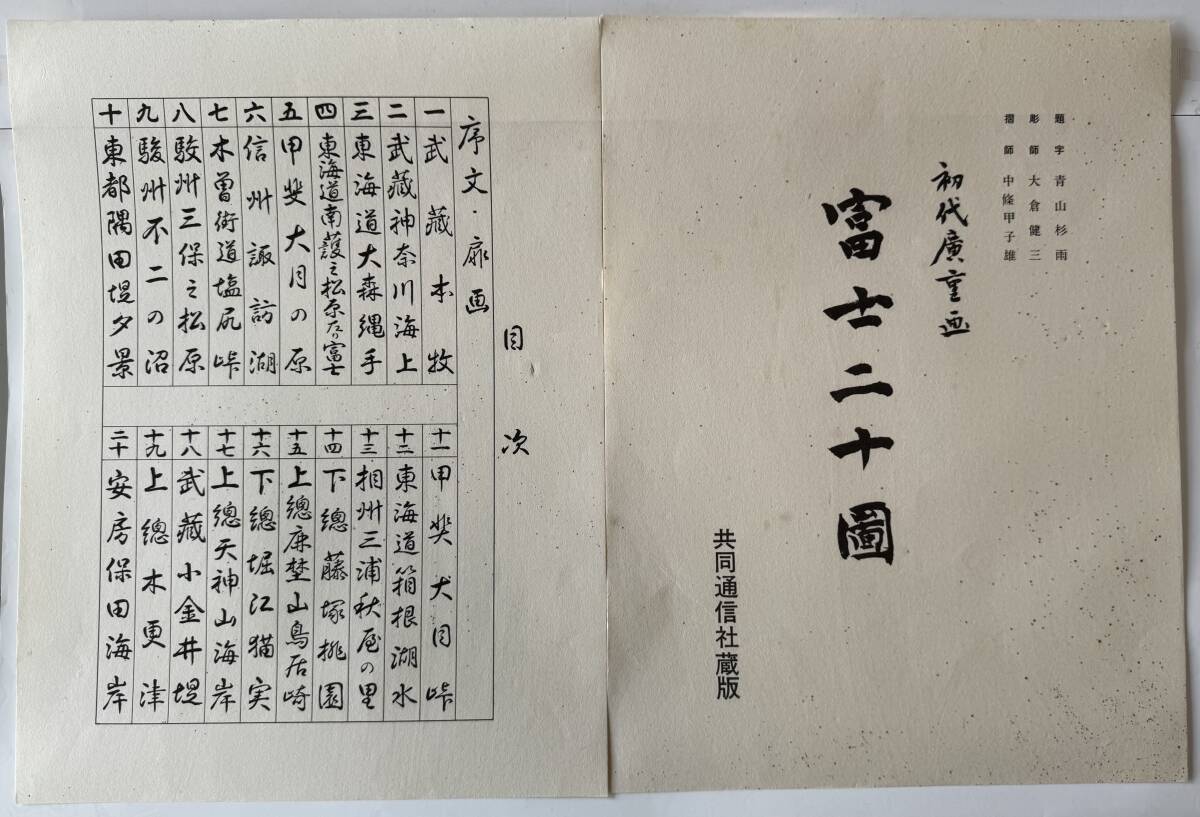 題字 青山杉雨
彫師 大倉健三
摺師 中條甲子雄
初代廣重画
富士二十圖
共同通信社蔵版
目次
序文・扉画
一 武藏本牧
二 武藏神奈川海上
三 東海道大森縄手
四 東海道南護之松原左り富士
五 甲斐大月の原
六 信州諏訪湖
七 木曽街道塩尻峠
八 駿州三保之松原
九 駿州不二の沼
十 東都隅田堤夕景
十一 甲斐犬目峠
十二 東海道箱根湖水
十三 相州三浦秋屋の里
十四 下總藤塚桃園
十五 上總鹿埜山鳥居崎
十六 下總堀江猫実
十七 上總天神山海岸
十八 武藏小金井堤
十九 上總木更津
二十 安房保田海岸